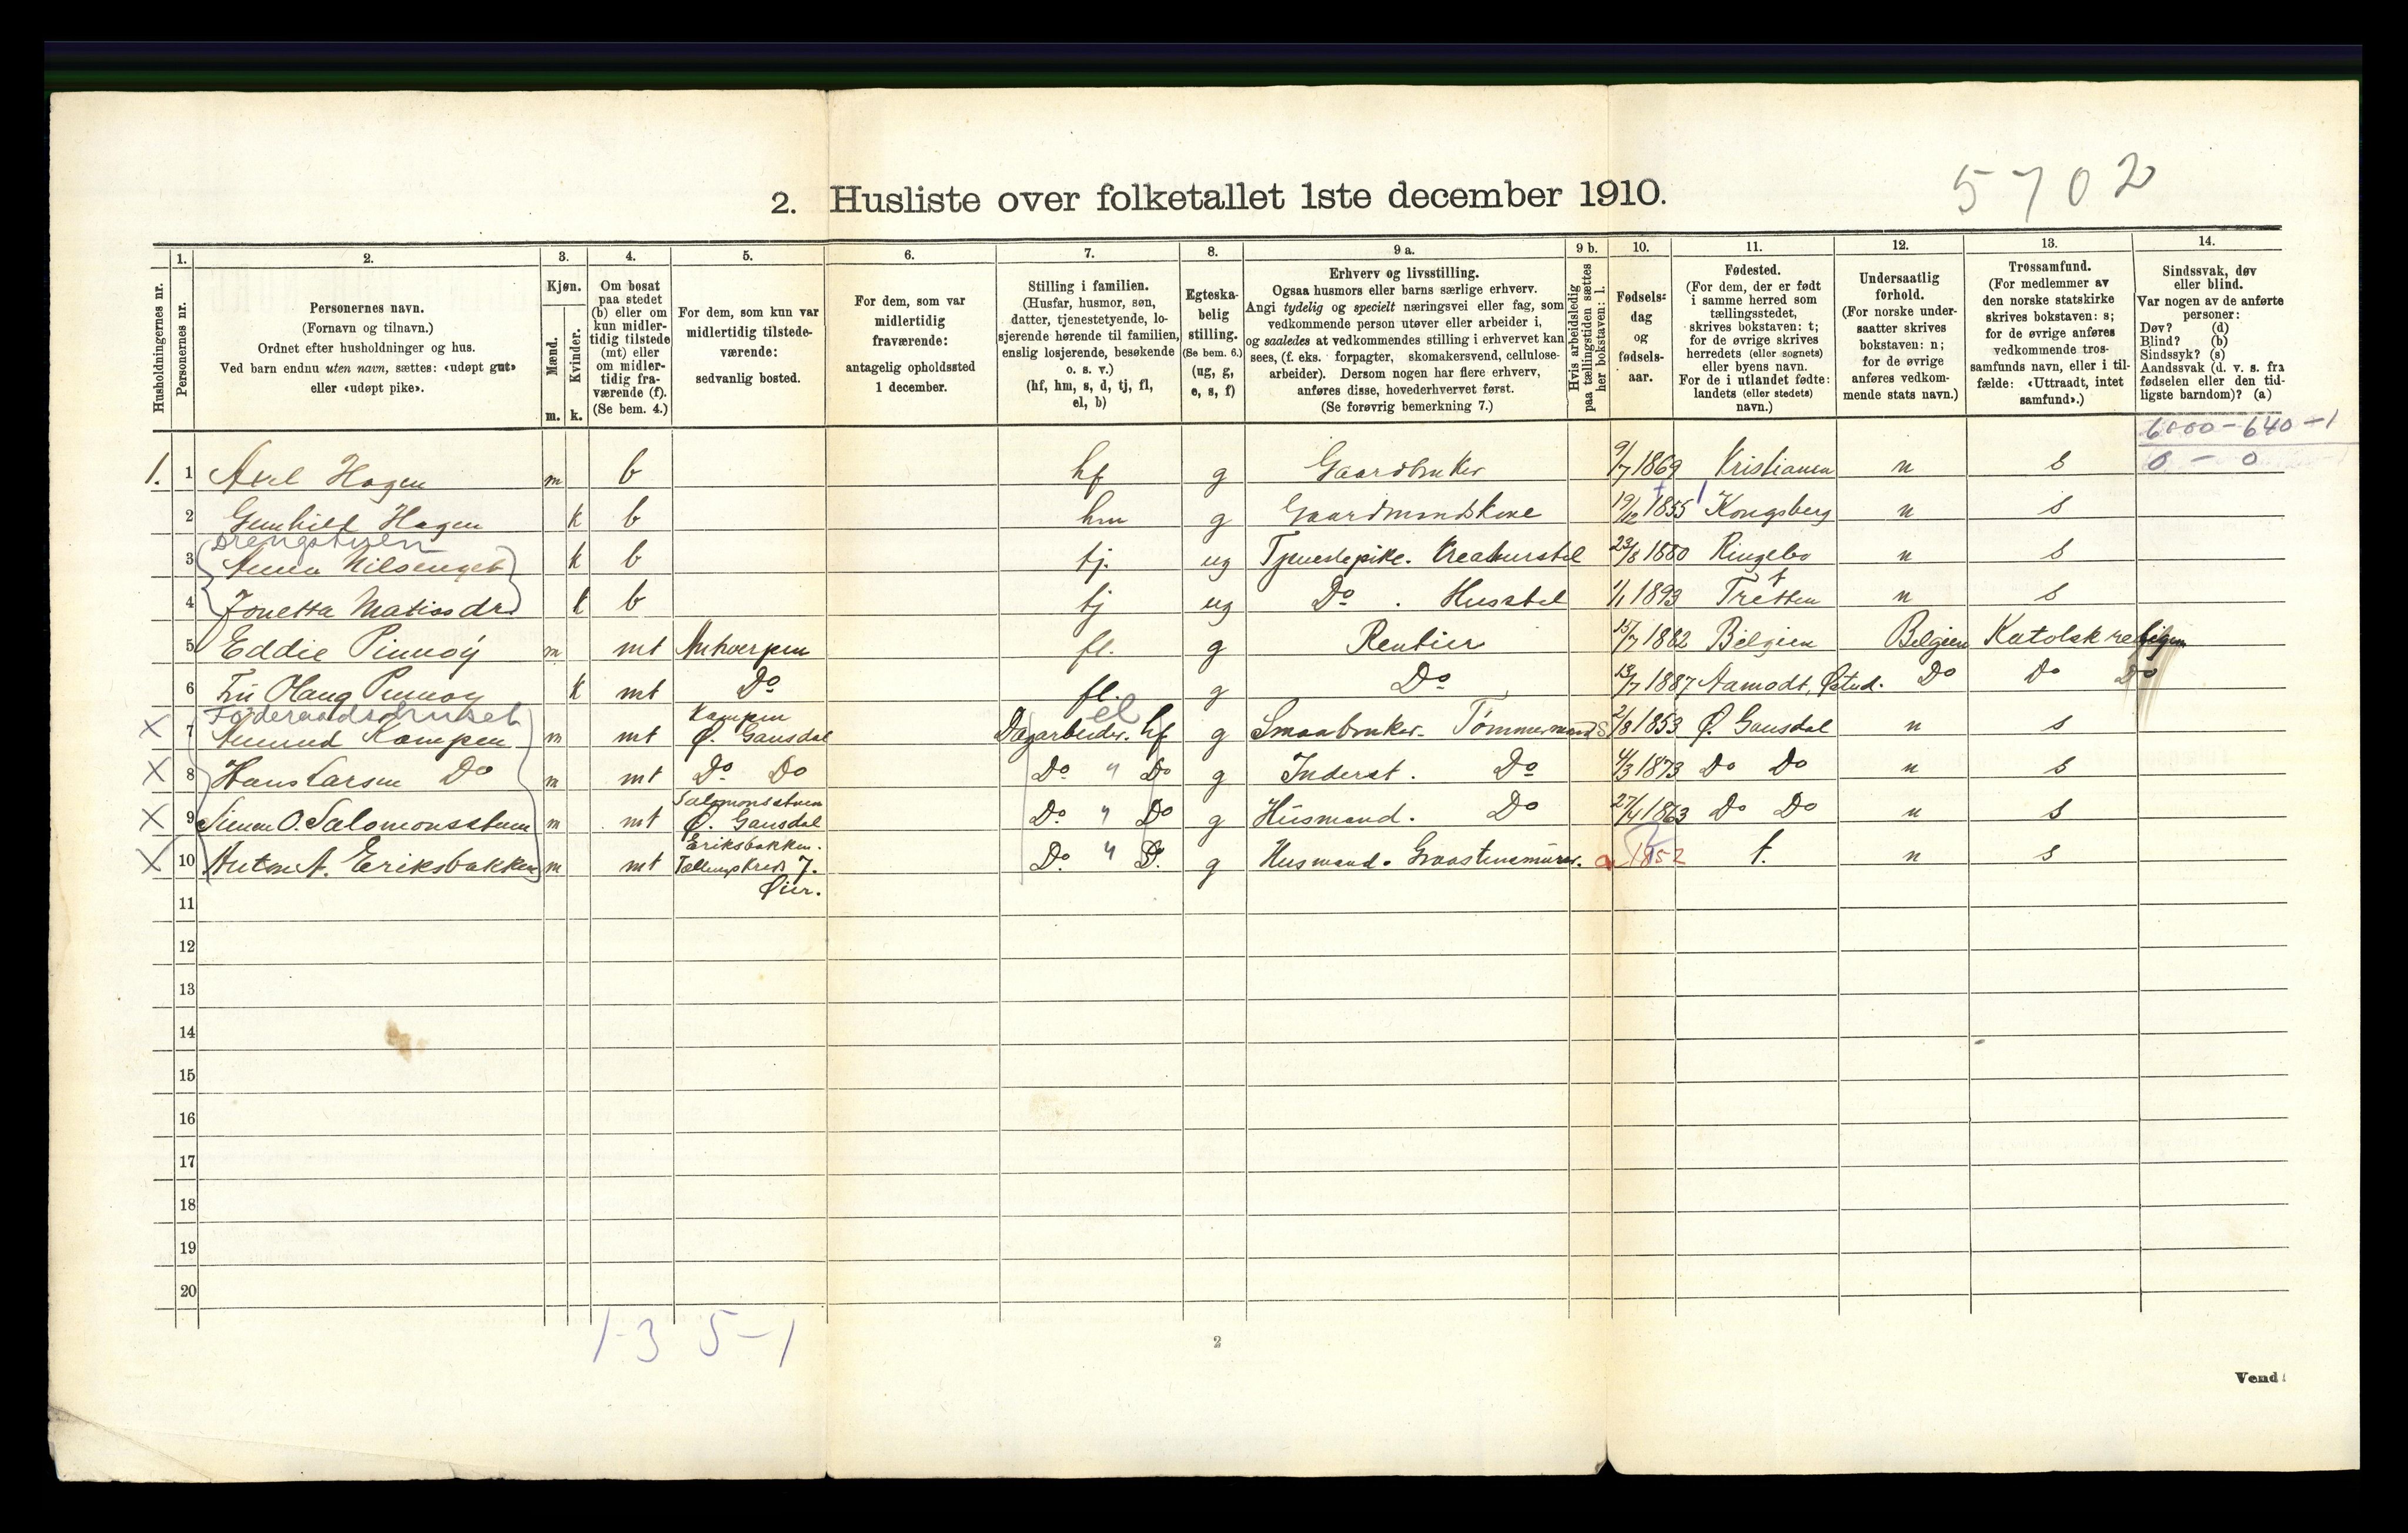 5702
2. Husliste over folketallet 1ste december 1910.
Husholdningernes nr.
1.
Personernes nr.
2.
Personernes navn.
(Fornavn og tilnavn.)
Ordnet efter husholdninger og hus.
Ved barn endnu uten navn, sættes: «udøpt gut»
eller «udøpt pike».
3.
Kjøn.
Mænd.
Kvinder.
m. k.
4.
Om bosat
paa stedet
(b) eller om
kun midler-
tidig tilstede
(mt) eller
om midler-
tidig fra-
værende (f).
(Se bem. 4.)
5.
For dem, som kun var
midlertidig tilstede-
værende:
sedvanlig bosted.
6.
For dem, som var
midlertidig
fraværende:
antagelig opholdssted
1 december.
7.
Stilling i familien.
(Husfar, husmor, søn,
datter, tjenestetyende, lo-
sjerende hørende til familien,
enslig losjerende, besøkende
o. s. v.)
(hf, hm, s, d, tj, fl,
el, b)
8.
Egteska-
belig
stilling.
(Se bem. 6.)
(ug, g,
e, s, f)
9 a.
Erhverv og livsstilling.
Ogsaa husmors eller barns særlige erhverv.
Angi tydelig og specielt næringsvei eller fag, som
vedkommende person utøver eller arbeider i,
og saaledes at vedkommendes stilling i erhvervet kan
sees, (f. eks. forpagter, skomakersvend, cellulose-
arbeider). Dersom nogen har flere erhverv,
anføres disse, hovederhvervet først.
(Se forøvrig bemerkning 7.)
9 b.
Hvis arbeidsledig
paa tællingstiden sættes
her bokstaven: l.
10.
Fødsels-
dag
og
fødsels-
aar.
11.
Fødested.
(For dem, der er født
i samme herred som
tællingsstedet,
skrives bokstaven: t;
for de øvrige skrives
herredets (eller sognets)
eller byens navn.
For de i utlandet fødte:
landets (eller stedets)
navn.)
12.
Undersaatlig
forhold.
(For norske under-
saatter skrives
bokstaven: n;
for de øvrige
anføres vedkom-
mende stats navn.)
13.
Trossamfund.
(For medlemmer av
den norske statskirke
skrives bokstaven: s;
for de øvrige anføres
vedkommende tros-
samfunds navn, eller i til-
fælde: «Uttraadt, intet
samfund».)
14.
Sindssvak, døv
eller blind.
Var nogen av de anførte
personer:
Døv? (d)
Blind? (b)
Sindssyk? (s)
Aandssvak (d. v. s. fra
fødselen eller den tid-
ligste barndom)? (a)
6000 - 640 - 1
0 - 0
1. 1 Axel Hagen m b hf g Gaardbruker 9/7 1869 Kristiania n s
2 Gunhild Hagen k b hm g Gaardmandskone 19/12 1855 Kongsberg n s
Drengstuen
3 Anna Nilsenget k b tj. ug Tjenestepike. Kreaturstel 23/8 1880 Ringebo n s
4 Jonetta Matisdr. k b tj ug Do . Husstel 1/1 1893 Tretten t n s
5 Eddie Pinnoy m mt Antwerpen fl. g Rentier 15/7 1882 Belgien Belgien Katolsk religion
6 Fru Haug Pinnoy k mt Do fl. g Do 13/7 1887 Aamodt, Østerd. Do Do Do
Føderaadshuset
el
Kampen
X 7 Amund Kampen m mt Ø. Gausdal Dagarbeider. hf g Smaabruker. Tømmermand 2/8 1853 Ø. Gausdal n s
X 8 Hans Larsen Do m mt Do Do Do " Do g Inderst. Do 4/3 1873 Do Do n s
Salomonsstuen
X 9 Simen O. Salomonsstuen m mt Ø. Gausdal Do " Do g Husmand. Do 27/4 1863 Do Do n s
Eriksbakken.
X 10 Anton A. Eriksbakken m mt Tællingskreds 7. Do. " D. g Husmand. Graastensmurer. 1852 t. n s
Øier.
11
12
13
14
15
16
17
18
19
20
1-3 5-1
2
Vend!